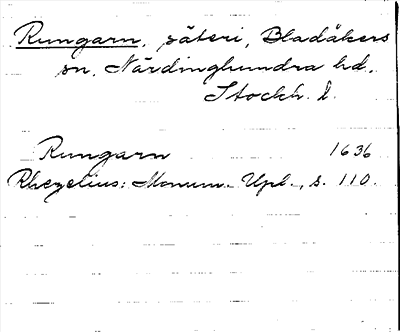 Rungarn, säteri, Bladåkers
sn, Närdinghundra hd,
Stockh. l.
Rungarn 1636
Rhezelius: Monum. Upl., s. 110.